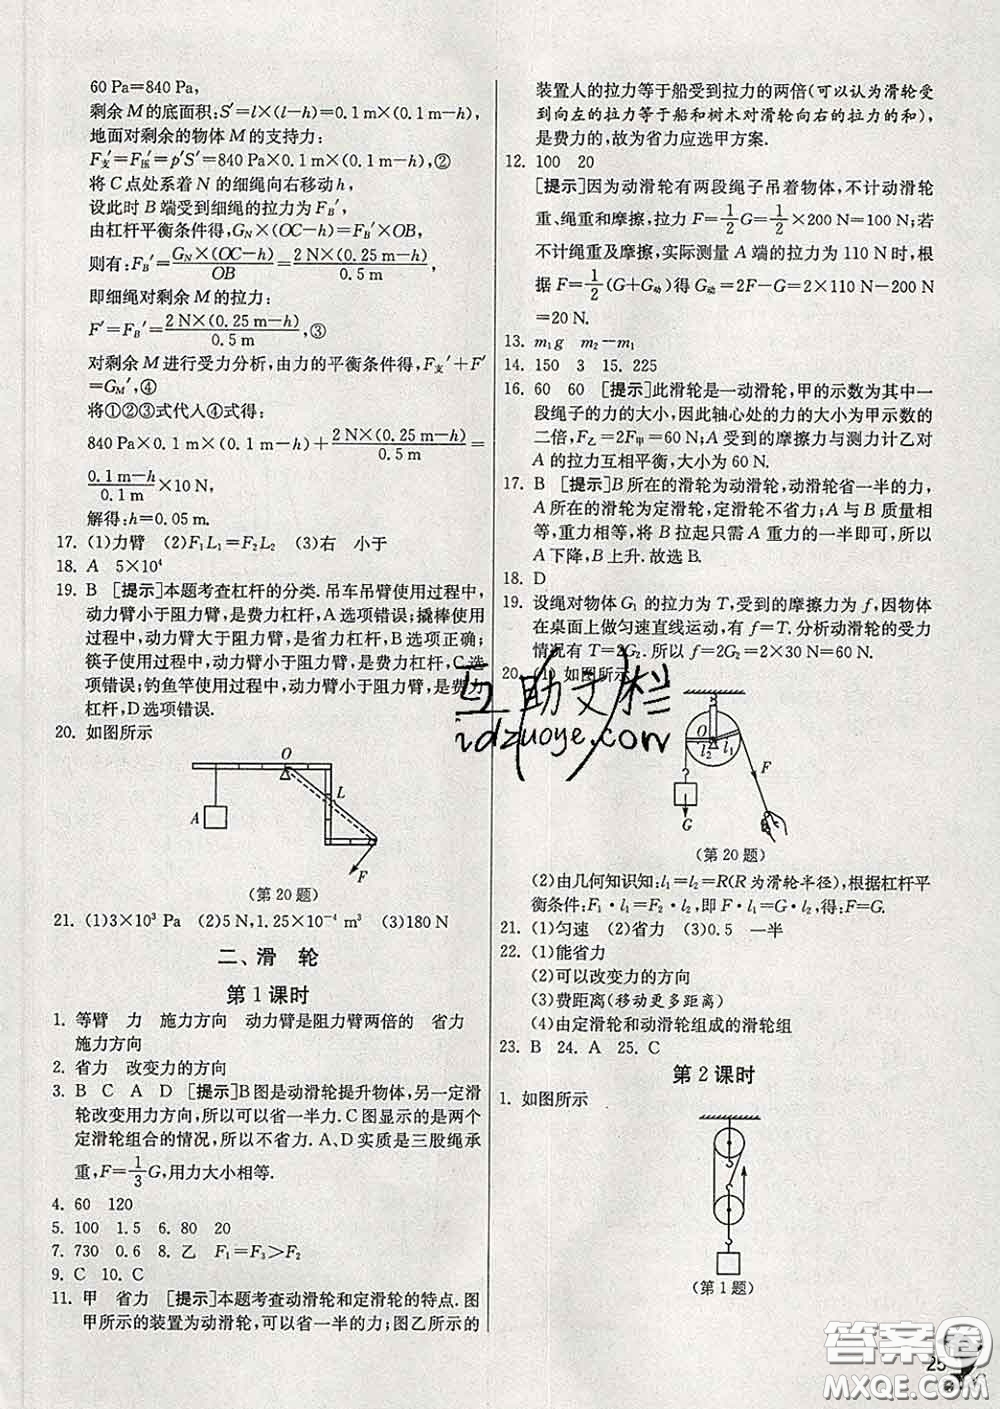 60 Pa=840 Pa,
剩余 M 的底面积:S′=l×(l−h)=0.1 m×(0.1 m−h),
地面对剩余的物体 M 的支持力:
F支′=F压′=p′S′=840 Pa×0.1 m×(0.1 m−h),②
将 C 点处系着 N 的细绳向右移动 h,
设此时 B 端受到细绳的拉力为 FB′,
由杠杆平衡条件得,GN×(OC−h)=FB′×OB,
则有:FB′=GN×(OC−h)/OB=2 N×(0.25 m−h)/0.5 m,
即细绳对剩余 M 的拉力:
F′=FB′=2 N×(0.25 m−h)/0.5 m,③
对剩余 M 进行受力分析,由力的平衡条件得,F支′+F′
=GM′,④
将①②③式代人④式得:
840 Pa×0.1 m×(0.1 m−h)+2 N×(0.25 m−h)/0.5 m=
0.1 m−h/0.1 m×10 N,
解得:h=0.05 m.
17. (1)力臂 (2)F1L1=F2L2 (3)右 小于
18. A 5×10⁴
19. B [提示]本题考查杠杆的分类.吊车吊臂使用过程中,
动力臂小于阻力臂,是费力杠杆,A选项错误;撬棒使用
过程中,动力臂大于阻力臂,是省力杠杆,B选项正确;
筷子使用过程中,动力臂小于阻力臂,是费力杠杆,C选
项错误;钓鱼竿使用过程中,动力臂小于阻力臂,是费力
杠杆,D选项错误.
20. 如图所示
O
L
A
F
(第20题)
21. (1)3×10³ Pa (2)5 N,1.25×10⁻⁴ m³ (3)180 N
二、滑 轮
第1课时
1. 等臂 力 施力方向 动力臂是阻力臂两倍的 省力
施力方向
2. 省力 改变力的方向
3. B C A D [提示]B图是动滑轮提升物体,另一定滑
轮改变用力方向,所以可以省一半力.C图显示的是两个
定滑轮组合的情况,所以不省力.A、D实质是三股绳承
重,F=1/3G,用力大小相等.
4. 60 120
5. 100 1.5 6. 80 20
7. 730 0.6 8. 乙 F1=F3>F2
9. C 10. C
11. 甲 省力 [提示]本题考查动滑轮和定滑轮的特点.图
甲所示的装置为动滑轮,可以省一半的力;图乙所示的
装置人的拉力等于船受到拉力的两倍(可以认为滑轮受
到向左的拉力等于船和树木对滑轮向右的拉力的和),
是费力的,故为省力应选甲方案.
12. 100 20
[提示]因为动滑轮有两段绳子吊着物体,不计动滑轮
重、绳重和摩擦,拉力 F=1/2G=1/2×200 N=100 N;若
不计绳重及摩擦,实际测量 A 端的拉力为 110 N时,根
据 F=1/2(G+G动)得 G动=2F−G=2×110 N−200 N
=20 N.
13. m1g m2−m1
14. 150 3 15. 225
16. 60 60 [提示]此滑轮是一动滑轮,甲的示数为其中一
段绳子的力的大小,因此轴心处的力的大小为甲示数的
二倍,F乙=2F甲=60 N;A 受到的摩擦力与测力计乙对
A 的拉力互相平衡,大小为 60 N.
17. B [提示]B 所在的滑轮为动滑轮,动滑轮省一半的力,
A 所在的滑轮为定滑轮,定滑轮不省力;A 与 B 质量相
等,重力相等,将 B 拉起只需 A 重力的一半即可,所以
A 下降,B 上升.故选 B.
18. D
19. 设绳对物体 G1 的拉力为 T,受到的摩擦力为 f,因物体
在桌面上做匀速直线运动,有 f=T.分析动滑轮的受力
情况有 T=2G2.所以 f=2G2=2×30 N=60 N.
20. (1) 如图所示
O
l2 l1
F
G
(第20题)
(2)由几何知识知:l1=l2=R(R为滑轮半径),根据杠杆平
衡条件:F1·l1=F2·l2,即 F·l1=G·l2,得:F=G.
21. (1)匀速 (2)省力 (3)0.5 一半
22. (1)能省力
(2)可以改变力的方向
(3)费距离(移动更多距离)
(4)由定滑轮和动滑轮组成的滑轮组
23. B 24. A 25. C
第2课时
1. 如图所示
(第1题)
25
互助文栏
idzuoye.com
答案圈
MXQE.COM